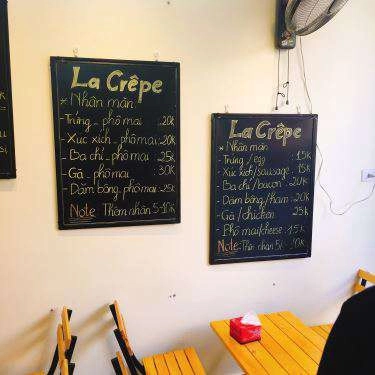 La Crêpe
* Nhân mặn
- Trứng _ phô mai _ 20k
- Xúc xích _ phô mai _ 20k
- Ba chỉ _ phô mai 25k
- Gà _ phô mai 30k
- Dăm bông, phô mai _ 25k
Note Thêm nhân 5-10k
La Crêpe
* Nhân mặn
- Trứng / egg : 15k
- Xúc xích/sausage : 15k
- Ba chỉ / bacon : 20k
- Dăm bông/ham : 20k
- Gà / chicken 25k
- Phô mai/cheese : 15k
Note: Thêm nhân 5k